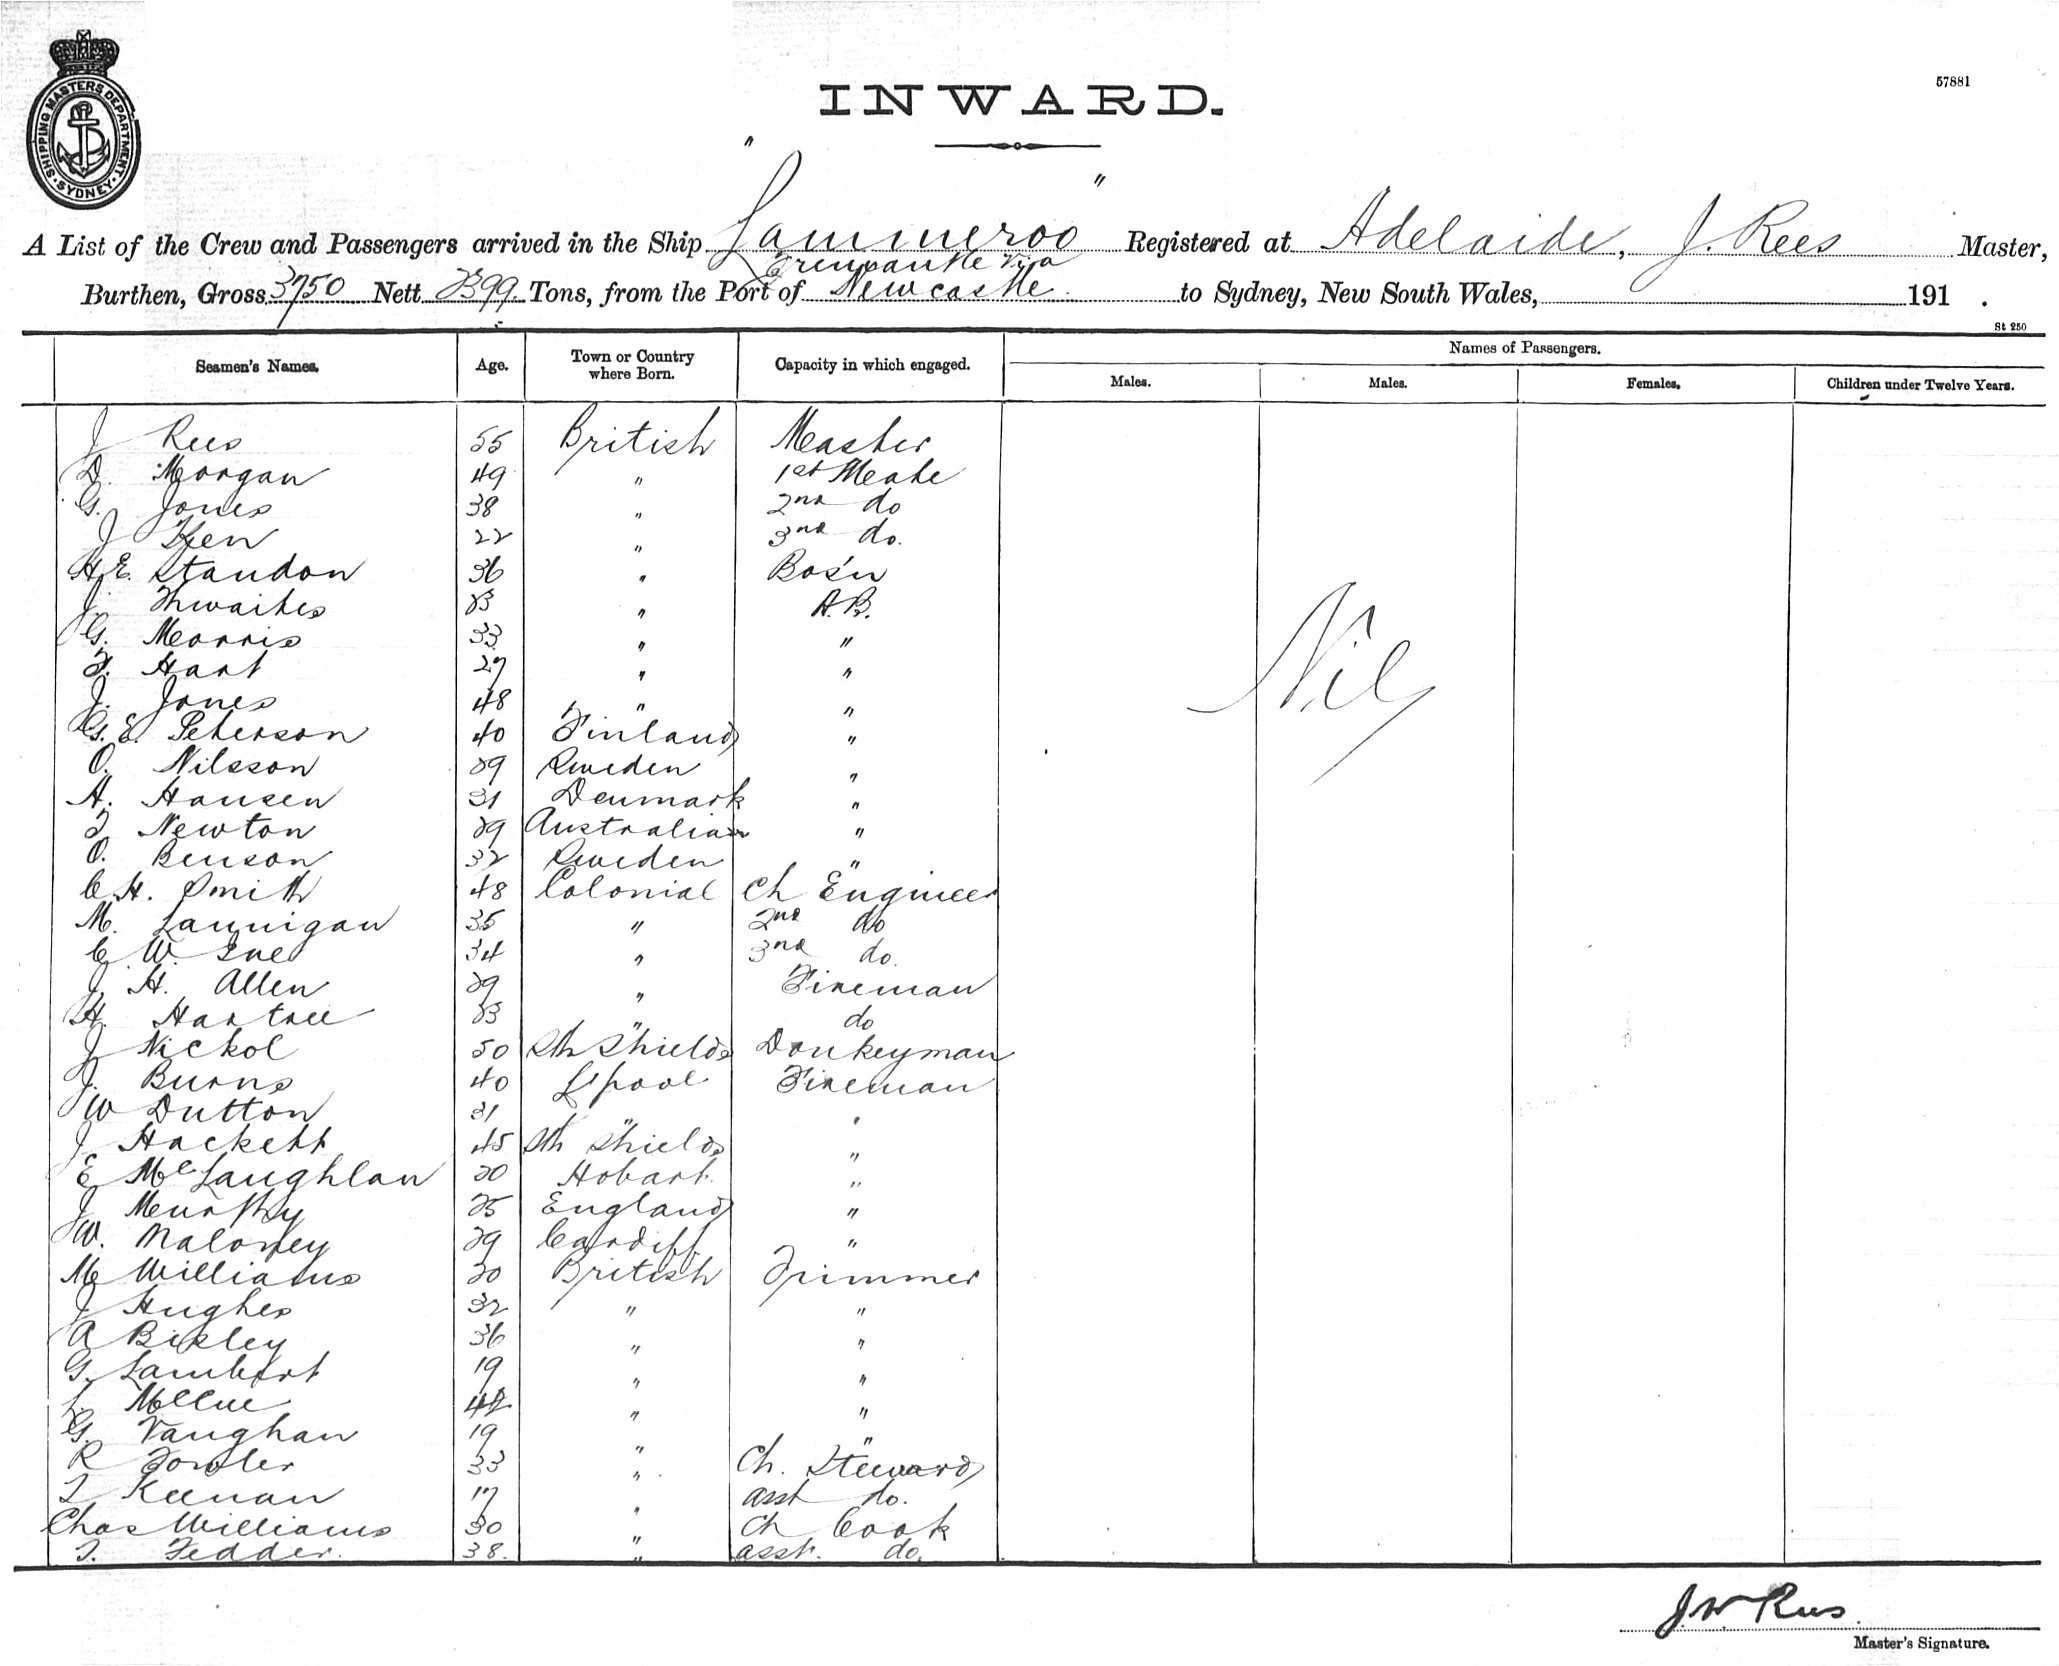 SHIPPING MASTERS DEPARTMENT · SYDNEY ·
57881
INWARD.
A List of the Crew and Passengers arrived in the Ship "Lammeroo" Registered at Adelaide, J. Rees Master,
Fremantle via
Burthen, Gross 3750 Nett 2399 Tons, from the Port of Newcastle. to Sydney, New South Wales, 191 .
St 250
Seamen's Names. Age. Town or Country where Born. Capacity in which engaged. Names of Passengers.
Males. Males. Females. Children under Twelve Years.
J Rees 55 British Master
D. Morgan 49 " 1st Mate
G. Jones 38 " 2nd do
J 22 " 3rd do.
H.E. Standon 36 " Bos'n
J. Thwaites 23 " A.B.
G. Morris 33 " "
F. Hart 27 " "
Nil
J. Jones 48 " "
G.E. Peterson 40 Finland "
O. Nilsson 29 Sweden "
A. Hansen 31 Denmark "
T Newton 29 Australian "
O. Benson 32 Sweden "
C.H. Smith 48 Colonial Ch Engineer
M. Lannigan 35 " 2nd do
C W. 34 " 3rd do.
J. H. Allen 29 " Fireman
H. Hartree 23 " do
J Nickol 50 Sth Shields Donkeyman
J. Burns 40 L'pool Fireman
W Dutton 31 " "
J Hackett 45 Sth Shields "
E McLaughlan 20 Hobart "
J Murphy 25 England "
W. Maloney 29 Cardiff "
M Williams 20 British Trimmer
J Hughes 32 " "
A Bisley 36 " "
G. Lambert 19 " "
L. 42 " "
G. Vaughan 19 " "
R Fowler 33 " Ch. Steward
T Keenan 17 " asst do.
Chas Williams 30 " Ch Cook
T. Tedder. 38. " asst. do.
J W Rees.
Master's Signature.